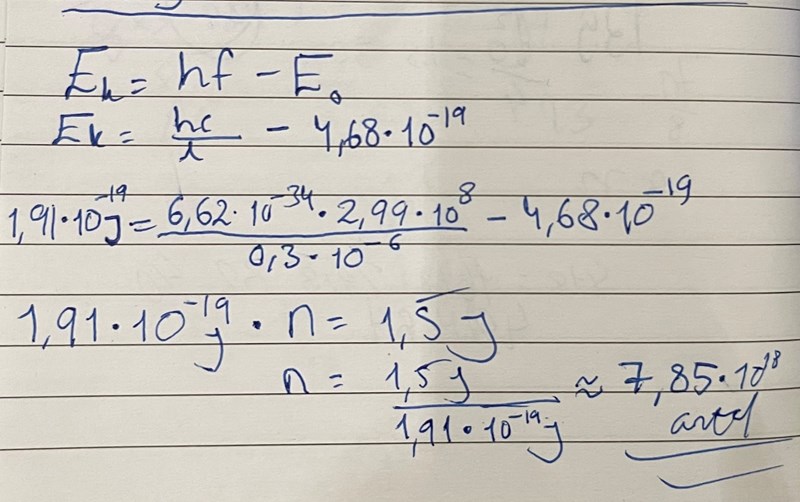 Ek = hf - E₀
Ek = hc/λ - 4,68·10⁻¹⁹
1,91·10⁻¹⁹J = 6,62·10⁻³⁴·2,99·10⁸/0,3·10⁻⁶ - 4,68·10⁻¹⁹
1,91·10⁻¹⁹J · n = 1,5J
n = 1,5J/1,91·10⁻¹⁹J ≈ 7,85·10¹⁸
antal